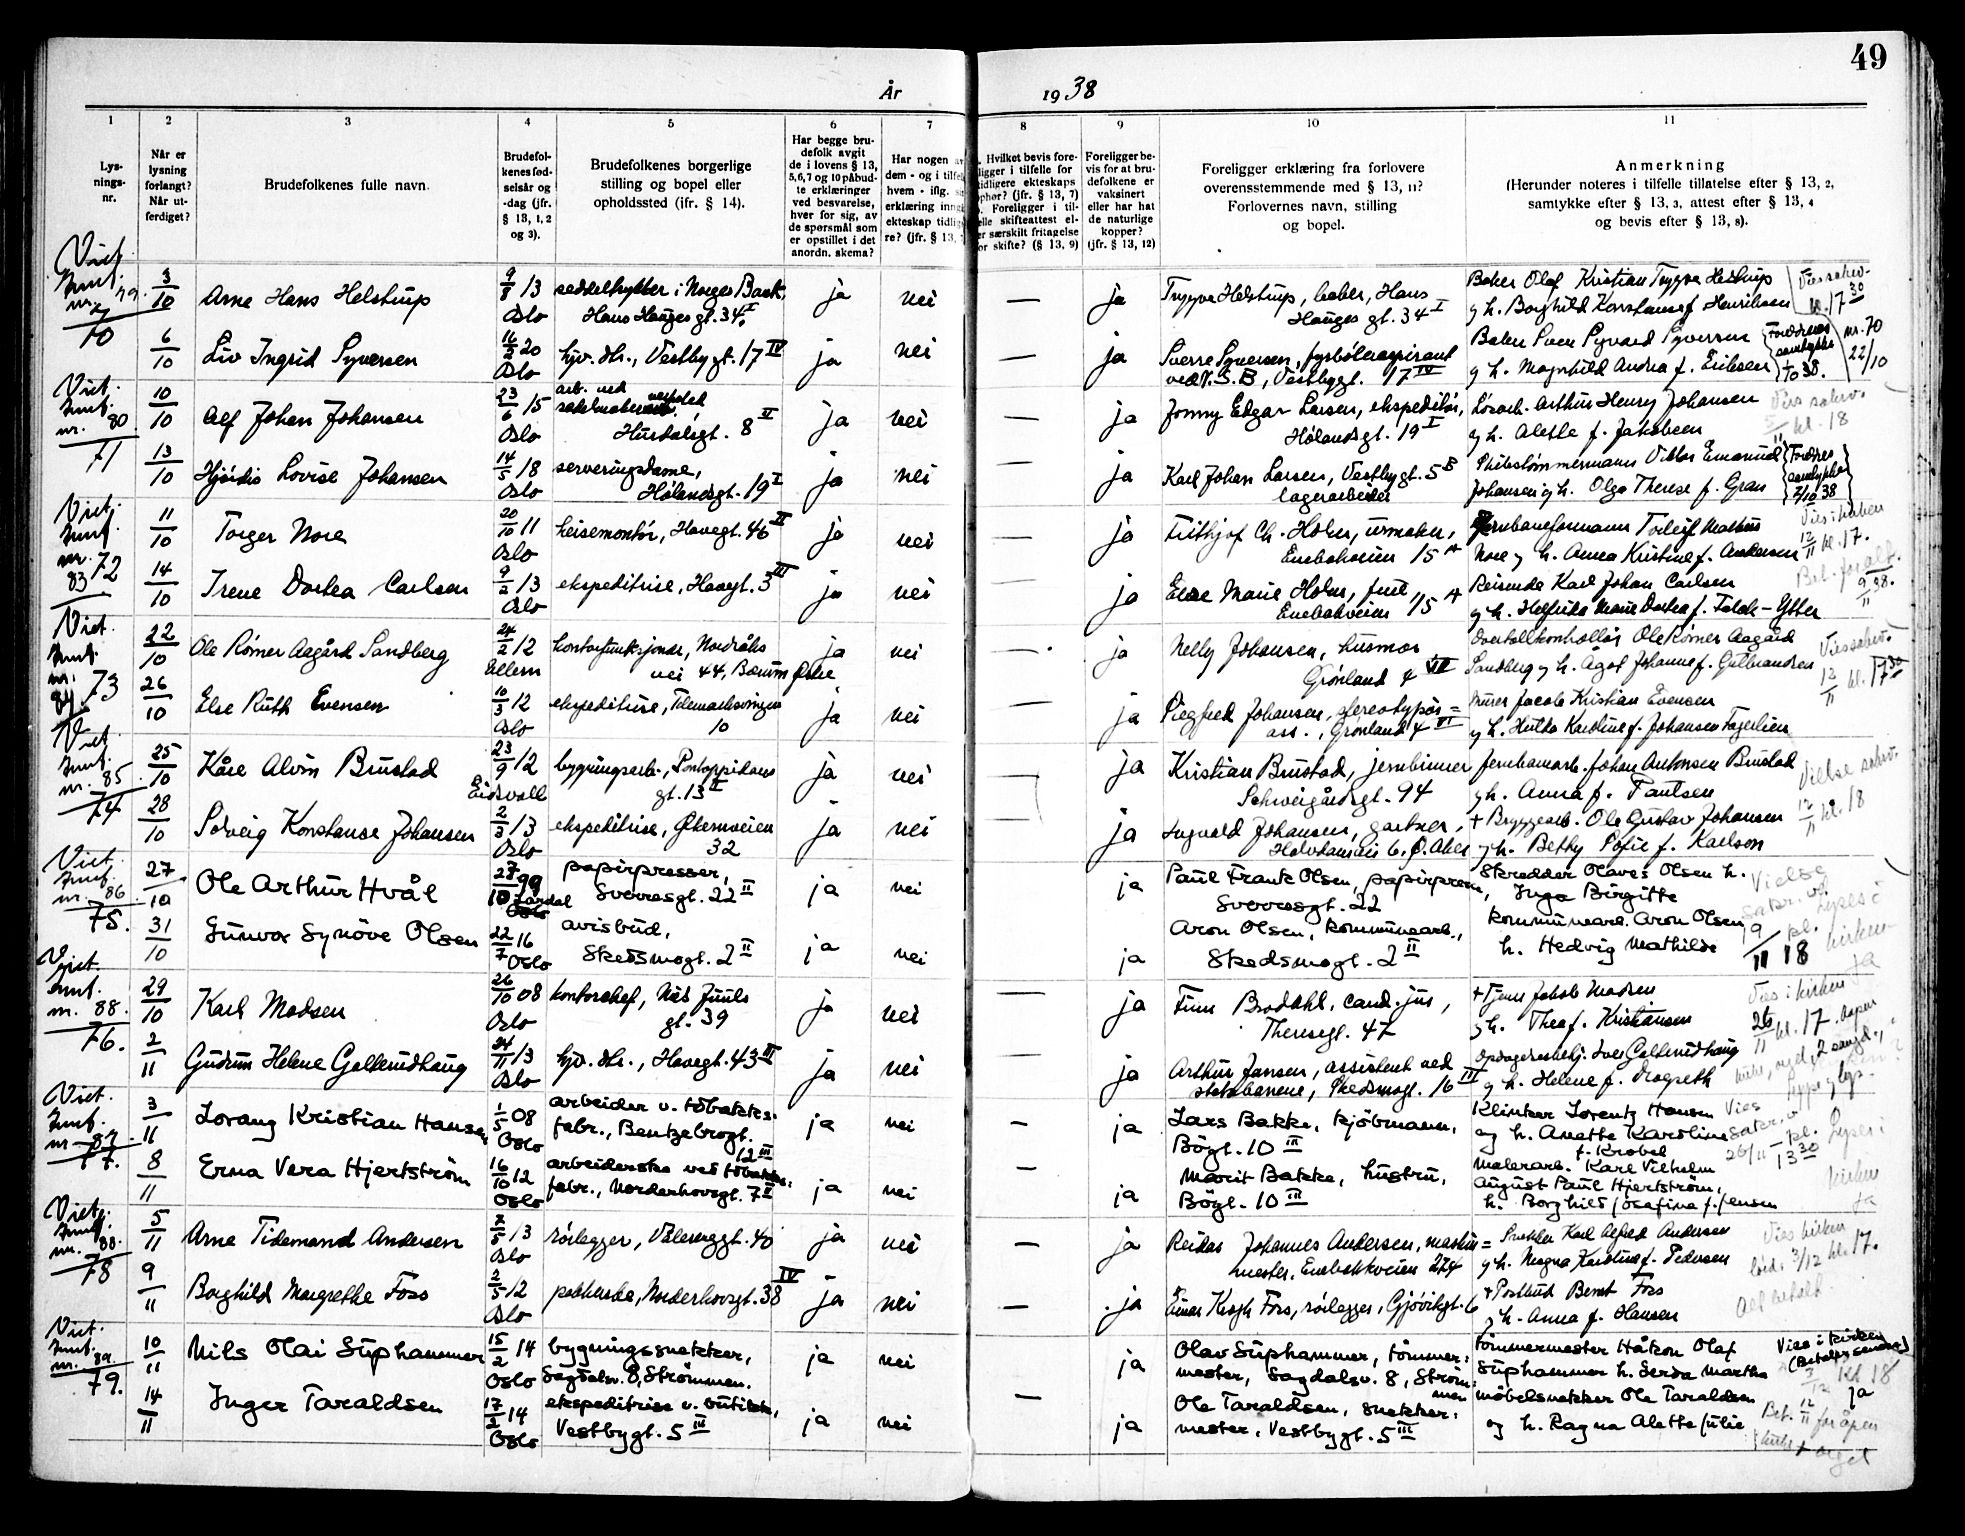 49
År 1938
1 2 3 4 5 6 7 8 9 10 11
Lys-
nings-
nr.
Når er
lysning
forlangt?
Når ut-
ferdiget?
Brudefolkenes fulle navn.
Brudefol-
kenes fød-
selsår og
-dag (jfr.
§ 13, 1, 2
og 3).
Brudefolkenes borgerlige
stilling og bopel eller
opholdssted (jfr. § 14).
Har begge bru-
defolk avgit
de i lovens § 13,
5, 6, 7 og 10 påbud-
te erklæringer
ved besvarelse,
hver for sig, av
de spørsmål som
er opstillet i det
anordn. skema?
Har nogen av
dem - og i tilfelle
hvem - iflg.
erklæring inng
ekteskap tidlig
re? (jfr. § 13,
Hvilket bevis fore-
ligger i tilfelle for
tidligere ekteskaps
ophør? (jfr. § 13, 7)
Foreligger i til-
felle skifteattest el-
er særskilt fritagelse
or skifte? (§ 13, 9)
Foreligger be-
vis for at bru-
defolkene er
vaksinert
eller har hat
de naturlige
kopper?
(jfr. § 13, 12)
Foreligger erklæring fra forlovere
overensstemmende med § 13, 11?
Forlovernes navn, stilling
og bopel.
Anmerkning
(Herunder noteres i tilfelle tillatelse efter § 13, 2,
samtykke efter § 13, 3, attest efter § 13, 4
og bevis efter § 13, 8).
Viet.
nr. 79.
70
3/10 Arne Hans Helstrup 9/8 13 Oslo seddeltrykker i Norges Bank, Hans Hauges gt. 34 I ja nei — ja Trygve Helstrup, baker, Hans Hauges gt. 34 I Baker Olaf Kristian Trygve Helstrup og h. Borghild Konstanse f. Henriksen kl. 17 30
6/10 Liv Ingrid Syversen 16/2 20 Oslo hjv. dtr., Vestbygt. 17 IV ja nei — ja Sverre Syversen, fyrbøteraspirant ved N.S.B, Vestbygt. 17 IV Baker Sven Syvard Syversen og h. Magnhild Andrea f. Eriksen Foreldrenes samtykke 38. nr. 70 22/10
Viet.
nr. 80
71
10/10 Alf Johan Johansen 23/6 15 Oslo arb. ved Hurdalsgt. 8 II ja nei — ja Jonny Edgar Larsen, ekspeditør, Hølandsgt. 19 I Arthur Henry Johansen og h. Alette f. Jakobsen kl. 18
13/10 Hjørdis Lovise Johansen 14/5 18 Oslo serveringsdame, Hølandsgt. 19 I ja nei — ja Karl Johan Larsen, Vestbygt. 5 B lagerarbeider Skibstømmermann Viktor Emanuel Johansen og h. Olga Therese f. Gran Foreldres samtykke 7/10 38
Viet.
nr. 83
72
11/10 Torger Nore 20/10 11 Oslo heisemontør, Havegt. 46 II ja nei — ja Frithjof Ch. Holm, urmaker, Enebakveien 15 A Jernbaneformann Torleif Mathius Nore og h. Anna Kristine f. Andersen Vies i kirken 12/11 kl. 17.
14/10 Irene Dortea Carlsen 9/2 13 Oslo ekspeditrise, Havegt. 3 III ja nei — ja Else Marie Holm, frue Enebakveien 15 A Reisende Karl Johan Carlsen og h. Helfrida Marie Dortea f. Falck-Ytter Bet. for alt. 9/11 38.
Viet.
nr. 84
73
22/10 Ole Rømer Aagård Sandberg 24/2 12 Ullern kontorfunksjonær, Nordråks vei 44, Bærum Østre ja nei — ja Nelly Johansen, husmor Grønland 4 VII Overtollkontrollør Ole Rømer Aagård Sandberg og h. Ågot Johanne f. Gulbrandsen 12/11 kl. 17 30
26/10 Else Ruth Evensen 10/3 12 Oslo ekspeditrise, Telemarksvingen 10 ja nei — ja Siegfred Johansen, stereotypør= ass., Grønland 4 VI Murer Jacob Kristian Evensen og h. Hulda Karoline f. Johansen Fagerlien
Viet.
nr. 85
74
25/10 Kåre Alvin Brustad 23/9 12 Eidsvoll bygningsarb., Pontoppidans gt. 13 II ja nei ja Kristian Brustad, jernbinner Schweigårdsgt. 94 Jernbanearb. Johan Antonsen Brustad og h. Anna f. Paulsen Vielse sakr. 12/11 kl. 18
28/10 Solveig Konstanse Johansen 2/3 13 Oslo ekspeditrise, Økernveien 32 ja nei ja Ingvald Johansen, gartner, 6. Ø. Aker + Bryggearb. Ole Gustav Johansen og h. Betty Sofie f. Karlson
Viet.
nr. 86
75.
27/10 Ole Arthur Hvål 27/10 99 Lardal papirpresser, Sverresgt. 22 II ja nei ja Paul Frank Olsen, papirpresser, Sverresgt. 22 Skredder Olaves Olsen h. Inga Birgitte Vielse sakr. 19/11 kl. 18 Lyses i kirken ja
31/10 Gunvor Synöve Olsen 22/7 16 Oslo avisbud, Skedsmogt. 2 II ja nei ja Aron Olsen, kommunearb., Skedsmogt. 2 II kommunearb. Aron Olsen h. Hedvig Mathilde
Viet.
nr. 88.
76.
29/10 Karl Madsen 26/10 08 Oslo kontorchef, Niels Juuls gt. 39 ja nei — ja Finn Brodahl, cand. jur, Theresegt. 47 + Tjener Jakob Madsen og h. Thea f. Kristiansen Vies i kirken 26/11 kl. 17.
2/11 Gudrun Helene Gallerudhaug 24/11 13 Oslo hjv. dtr., Havegt. 43 III ja nei — ja Arthur Jansen, assistent ved statsbanene, Skedsmogt. 16 III Opdagelsesbetj. Lars Gallerudhaug og h. Helene f. Dragseth
Viet.
nr. 87
77.
3/11 Lorang Kristian Hansen 1/5 08 Oslo arbeider v. tobakks- fabr., Bentzebrogt. 12 III ja nei — ja Lars Bakke, kjöbmann, Bögt. 10 III Klinker Lorentz Hansen og h. Anette Karoline f. Krobel Vies sakr. v 26/11 kl. 13 30 Lyses i kirken ja
8/11 Erna Vera Hjertström 16/10 12 Oslo arbeiderske ved tobakks- fabr., Norderhovsgt. 7 II ja nei — ja Marit Bakke, hustru, Bögt. 10 III Malerarb. Karl Vilhelm August Paul Hjertström, h. Borghild Josefina f. Jensen
Viet.
nr. 88.
78
5/11 Arne Tidemand Andersen 13 Oslo rørlegger, Vålerenggt. 40 ja nei — ja Reidar Johannes Andersen, maskin= mester, Enebakkveien 274 Snekker Karl Alfred Andersen og h. Magna Karoline f. Pedersen Vies kirken 3/12 kl. 17.
9/11 Borghild Margrethe Foss 2/5 12 Oslo pakkerske, Norderhovsgt. 38 IV ja nei — ja Einar Krogh Foss, rørlegger, Gjøvikgt. 6 + Postbud Bernt Foss og h. Anna f. Hansen Alt betalt.
Viet.
nr. 89.
79.
10/11 Nils Olai Suphammer 15/2 14 Oslo bygningssnekker, Sagdalsv. 8, Strömmen. ja nei ja Olav Suphammer, tömmer- mester, Sagdalsv. 8, Ström- men Tömmermester Håkon Olaf Suphammer h. Gerda Martha Vies i kirken (Betaler senere) 3/12 kl 18 ja
14/11 Inger Taraldsen 17/2 14 Oslo ekspeditrise v. butikk, Vestbygt. 5 III ja nei — ja Ole Taraldsen, snekker- mester, Vestbygt. 5 III möbelsnekker Ole Taraldsen og h. Ragna Alette Julie Bet. 12/11 for åpen kirke + orgel